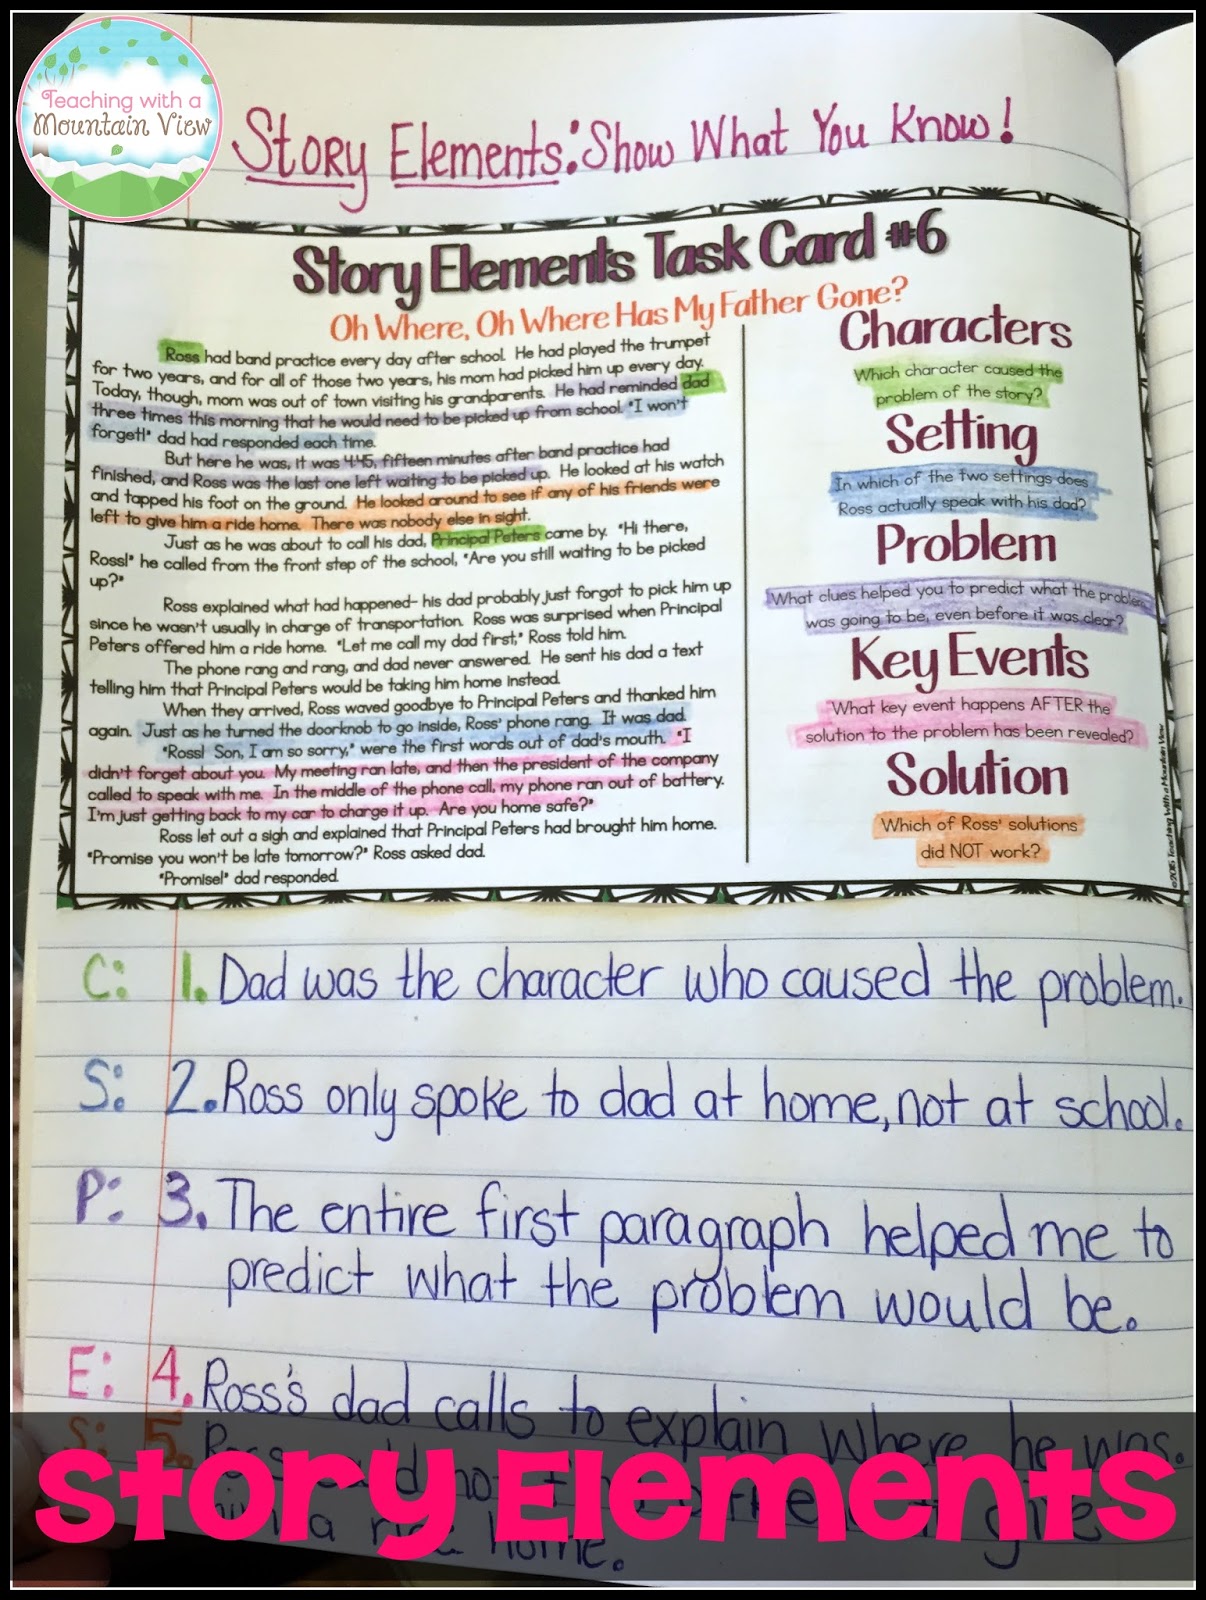 Teaching with a
Mountain View
Story Elements: Show What You Know!
Story Elements Task Card #6
Oh Where, Oh Where Has My Father Gone?
Ross had band practice every day after school. He had played the trumpet
for two years, and for all of those two years, his mom had picked him up every day.
Today, though, mom was out of town visiting his grandparents. He had reminded dad
three times this morning that he would need to be picked up from school. "I won't
forget!" dad had responded each time.
But here he was, it was 4:45, fifteen minutes after band practice had
finished, and Ross was the last one left waiting to be picked up. He looked at his watch
and tapped his foot on the ground. He looked around to see if any of his friends were
left to give him a ride home. There was nobody else in sight.
Just as he was about to call his dad, Principal Peters came by. "Hi there,
Ross!" he called from the front step of the school, "Are you still waiting to be picked
up?"
Ross explained what had happened- his dad probably just forgot to pick him up
since he wasn't usually in charge of transportation. Ross was surprised when Principal
Peters offered him a ride home. "Let me call my dad first," Ross told him.
The phone rang and rang, and dad never answered. He sent his dad a text
telling him that Principal Peters would be taking him home instead.
When they arrived, Ross waved goodbye to Principal Peters and thanked him
again. Just as he turned the doorknob to go inside, Ross' phone rang. It was dad.
"Ross! Son, I am so sorry," were the first words out of dad's mouth. "I
didn't forget about you. My meeting ran late, and then the president of the company
called to speak with me. In the middle of the phone call, my phone ran out of battery.
I'm just getting back to my car to charge it up. Are you home safe?"
Ross let out a sigh and explained that Principal Peters had brought him home.
"Promise you won't be late tomorrow?" Ross asked dad.
"Promise!" dad responded.
Characters
Which character caused the
problem of the story?
Setting
In which of the two settings does
Ross actually speak with his dad?
Problem
What clues helped you to predict what the problem
was going to be, even before it was clear?
Key Events
What key event happens AFTER the
solution to the problem has been revealed?
Solution
Which of Ross' solutions
did NOT work?
©2015 Teaching With a Mountain View
C: 1. Dad was the character who caused the problem.
S: 2. Ross only spoke to dad at home, not at school.
P: 3. The entire first paragraph helped me to
predict what the problem would be.
E: 4. Ross's dad calls to explain where he was.
S: 5. not give
him a ride home.
Story Elements